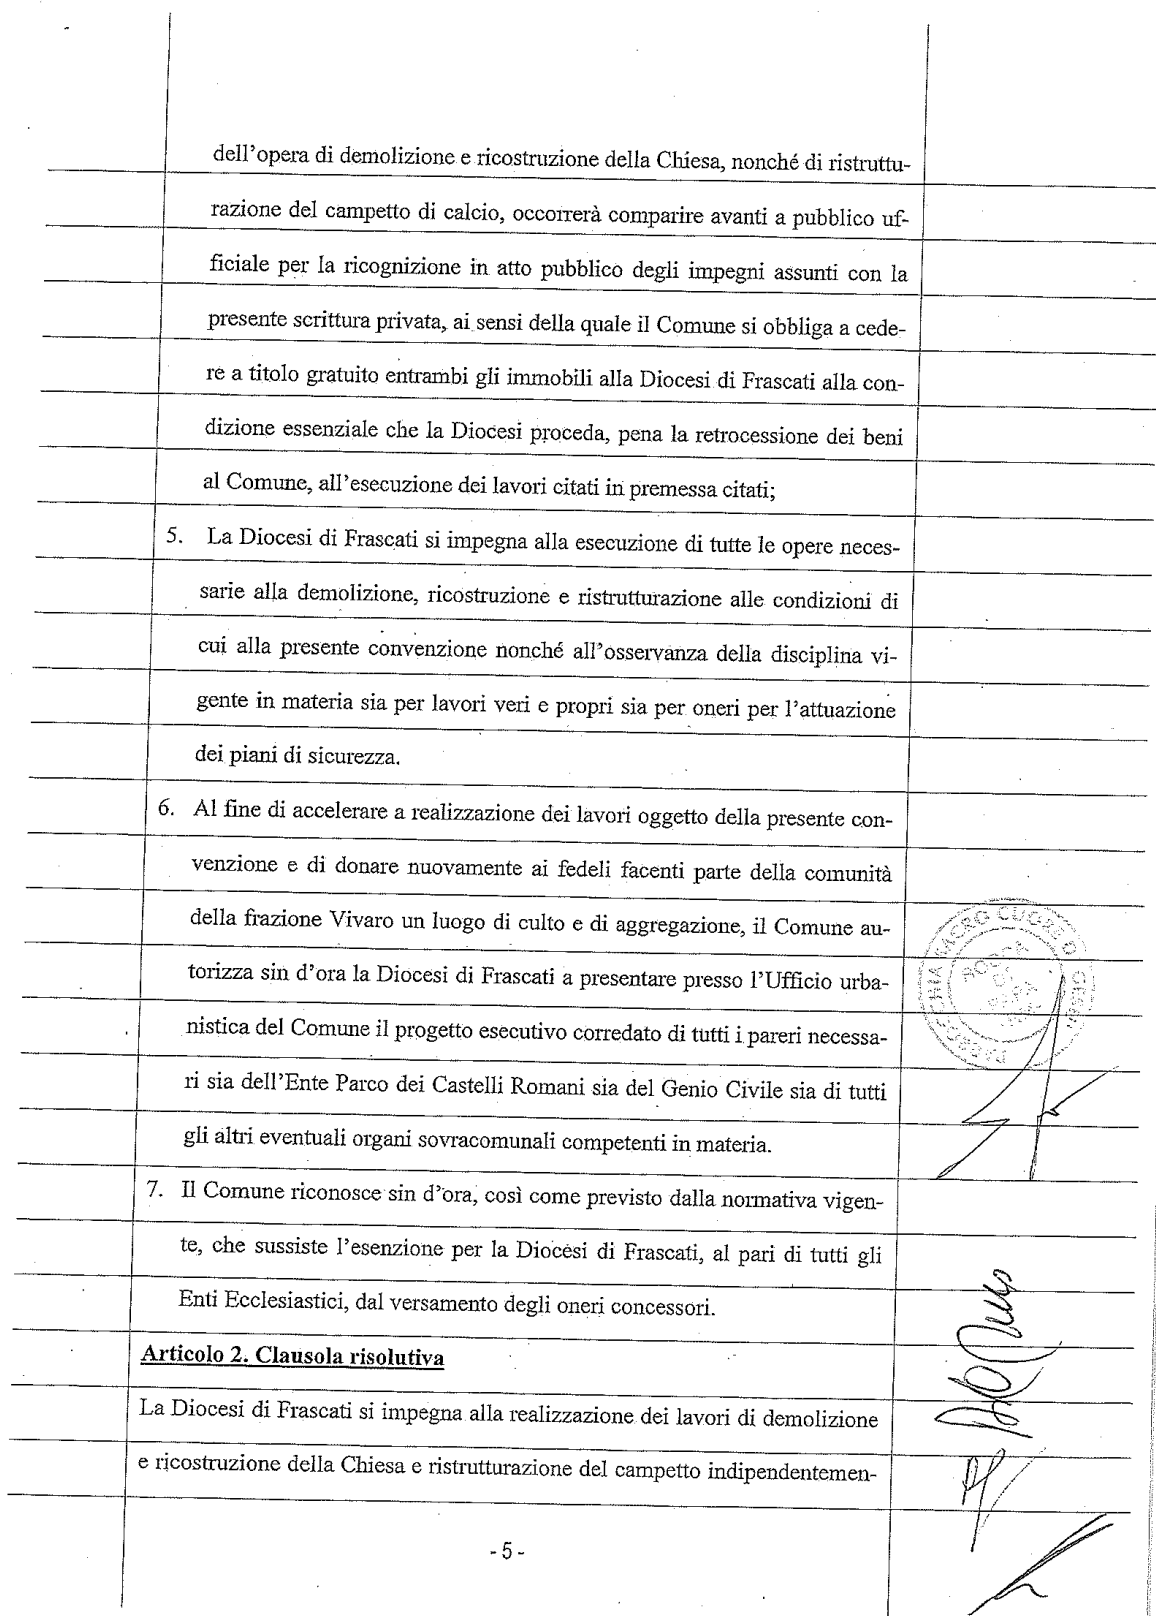 dell'opera di demolizione e ricostruzione della Chiesa, nonché di ristruttu-
razione del campetto di calcio, occorrerà comparire avanti a pubblico uf-
ficiale per la ricognizione in atto pubblico degli impegni assunti con la
presente scrittura privata, ai sensi della quale il Comune si obbliga a cede-
re a titolo gratuito entrambi gli immobili alla Diocesi di Frascati alla con-
dizione essenziale che la Diocesi proceda, pena la retrocessione dei beni
al Comune, all'esecuzione dei lavori citati in premessa citati;
5. La Diocesi di Frascati si impegna alla esecuzione di tutte le opere neces-
sarie alla demolizione, ricostruzione e ristrutturazione alle condizioni di
cui alla presente convenzione nonché all'osservanza della disciplina vi-
gente in materia sia per lavori veri e propri sia per oneri per l'attuazione
dei piani di sicurezza.
6. Al fine di accelerare a realizzazione dei lavori oggetto della presente con-
venzione e di donare nuovamente ai fedeli facenti parte della comunità
della frazione Vivaro un luogo di culto e di aggregazione, il Comune au-
torizza sin d'ora la Diocesi di Frascati a presentare presso l'Ufficio urba-
nistica del Comune il progetto esecutivo corredato di tutti i pareri necessa-
ri sia dell'Ente Parco dei Castelli Romani sia del Genio Civile sia di tutti
gli altri eventuali organi sovracomunali competenti in materia.
7. Il Comune riconosce sin d'ora, così come previsto dalla normativa vigen-
te, che sussiste l'esenzione per la Diocesi di Frascati, al pari di tutti gli
Enti Ecclesiastici, dal versamento degli oneri concessori.
Articolo 2. Clausola risolutiva
La Diocesi di Frascati si impegna alla realizzazione dei lavori di demolizione
e ricostruzione della Chiesa e ristrutturazione del campetto indipendentemen-
- 5 -
SACRO CUORE DI GESÙ
ROCCA DI PAPA